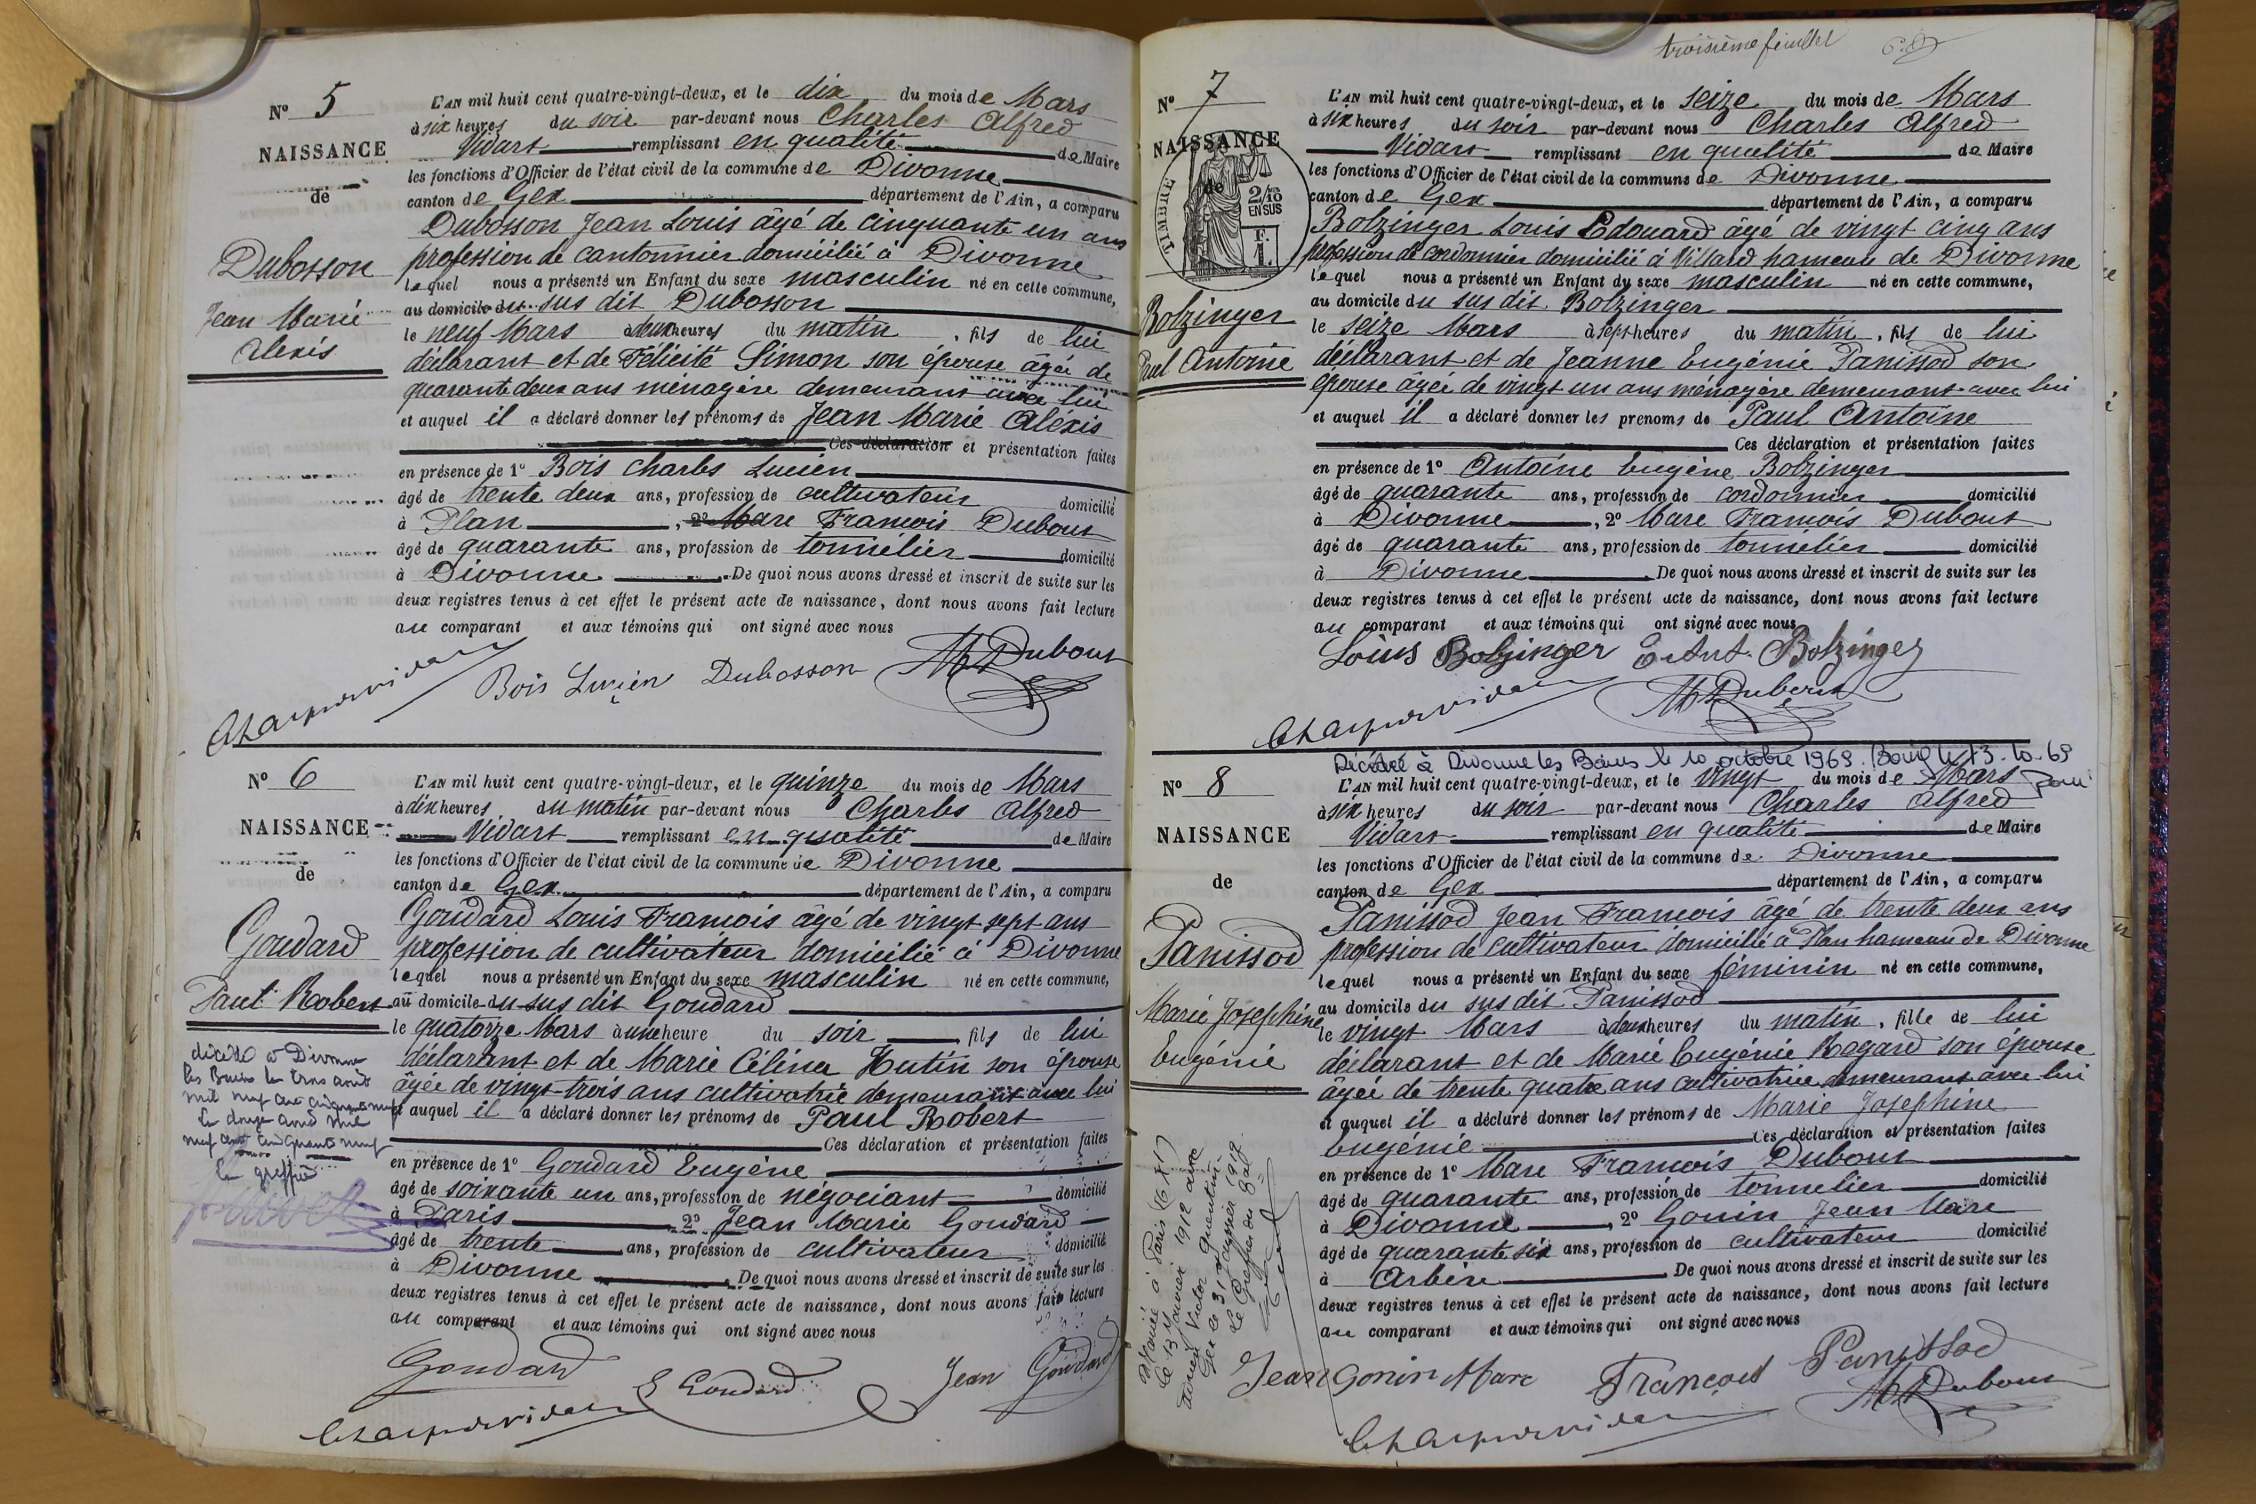 N° 5
NAISSANCE
de
Dubosson
Jean Marie
Alexis
L'AN mil huit cent quatre-vingt-deux, et le dix du mois de Mars
à six heures du soir par-devant nous Charles Alfred
Vidart remplissant en qualité de Maire
les fonctions d'Officier de l'état civil de la commune de Divonne
canton de Gex département de l'Ain, a comparu
Dubosson Jean Louis âgé de cinquante un ans
profession de cantonnier domicilié à Divonne
lequel nous a présenté un Enfant du sexe masculin né en cette commune,
au domicile du sus dit Dubosson
le neuf Mars à deux heures du matin, fils de lui
déclarant et de Félicité Simon son épouse âgée de
quarante deux ans ménagère demeurant avec lui
et auquel il a déclaré donner les prénoms de Jean Marie Aléxis
Ces déclaration et présentation faites
en présence de 1° Bois Charles Lucien
âgé de trente deux ans, profession de cultivateur domicilié
à Plan, 2° Marc François Dubout
âgé de quarante ans, profession de tonnélier domicilié
à Divonne. De quoi nous avons dressé et inscrit de suite sur les
deux registres tenus à cet effet le présent acte de naissance, dont nous avons fait lecture
au comparant et aux témoins qui ont signé avec nous
Bois Lucien Dubosson Dubout
N° 6
NAISSANCE
de
Goudard
Paul Robert
décédé à Divonne
les Bains le trois août
mil neuf cent cinquante neuf
le douze août mil
neuf cent cinquante neuf
le greffier
L'AN mil huit cent quatre-vingt-deux, et le quinze du mois de Mars
à dix heures du matin par-devant nous Charles Alfred
Vidart remplissant en qualité de Maire
les fonctions d'Officier de l'état civil de la commune de Divonne
canton de Gex département de l'Ain, a comparu
Goudard Louis François âgé de vingt sept ans
profession de cultivateur domicilié à Divonne
lequel nous a présenté un Enfant du sexe masculin né en cette commune,
au domicile du sus dit Goudard
le quatorze Mars à une heure du soir, fils de lui
déclarant et de Marie Célina Hutin son épouse
âgée de vingt-trois ans cultivatrice demeurant avec lui
et auquel il a déclaré donner les prénoms de Paul Robert
Ces déclaration et présentation faites
en présence de 1° Goudard Eugène
âgé de soixante un ans, profession de négociant domicilié
à Paris 2° Jean Marie Goudard
âgé de trente ans, profession de cultivateur domicilié
à Divonne. De quoi nous avons dressé et inscrit de suite sur les
deux registres tenus à cet effet le présent acte de naissance, dont nous avons fait lecture
au comparant et aux témoins qui ont signé avec nous
Goudard E Goudard Jean Goudard
troisième feuillet
N° 7
NAISSANCE
de
TIMBRE
2/10
EN SUS
Bolzinger
Paul Antoine
L'AN mil huit cent quatre-vingt-deux, et le seize du mois de Mars
à six heures du soir par-devant nous Charles Alfred
Vidart remplissant en qualité de Maire
les fonctions d'Officier de l'état civil de la commune de Divonne
canton de Gex département de l'Ain, a comparu
Bolzinger Louis Edouard âgé de vingt cinq ans
profession de cordonnier domicilié à Villard hameau de Divonne
lequel nous a présenté un Enfant du sexe masculin né en cette commune,
au domicile du sus dit Bolzinger
le seize Mars à sept heures du matin, fils de lui
déclarant et de Jeanne Eugénie Panissod son
épouse âgée de vingt un ans ménagère demeurant avec lui
et auquel il a déclaré donner les prenoms de Paul Antoine
Ces déclaration et présentation faites
en présence de 1° Antoine Eugène Bolzinger
âgé de quarante ans, profession de cordonnier domicilié
à Divonne, 2° Marc François Dubout
âgé de quarante ans, profession de tonnelier domicilié
à Divonne. De quoi nous avons dressé et inscrit de suite sur les
deux registres tenus à cet effet le présent acte de naissance, dont nous avons fait lecture
au comparant et aux témoins qui ont signé avec nous
Loüis Bolzinger E Ant. Bolzinger
Dubout
Décédé à Divonne les Bains le 10 octobre 1969.
N° 8
NAISSANCE
de
Panissod
Marie Josephine
Eugénie
Mariée à Paris
le 13 Janvier 1912 avec
Victor Quentin.
Gex le 31 Janvier 1912.
Le Greffier du Bal
L'AN mil huit cent quatre-vingt-deux, et le vingt du mois de Mars
à six heures du soir par-devant nous Charles Alfred
Vidart remplissant en qualité de Maire
les fonctions d'Officier de l'état civil de la commune de Divonne
canton de Gex département de l'Ain, a comparu
Panissod Jean François âgé de trente deux ans
profession de cultivateur domicilié à Plan hameau de Divonne
lequel nous a présenté un Enfant du sexe féminin né en cette commune,
au domicile du sus dit Panissod
le vingt Mars à deux heures du matin, fille de lui
déclarant et de Marie Eugénie Rogard son épouse
âgée de trente quatre ans cultivatrice demeurant avec lui
et auquel il a déclaré donner les prénoms de Marie Josephine
Eugénie Ces déclaration et présentation faites
en présence de 1° Marc François Dubout
âgé de quarante ans, profession de tonnelier domicilié
à Divonne, 2° Gonin Jean Marc
âgé de quarante six ans, profession de cultivateur domicilié
à Arbère. De quoi nous avons dressé et inscrit de suite sur les
deux registres tenus à cet effet le présent acte de naissance, dont nous avons fait lecture
au comparant et aux témoins qui ont signé avec nous
Jean Gonin Marc François Panissod
Dubout